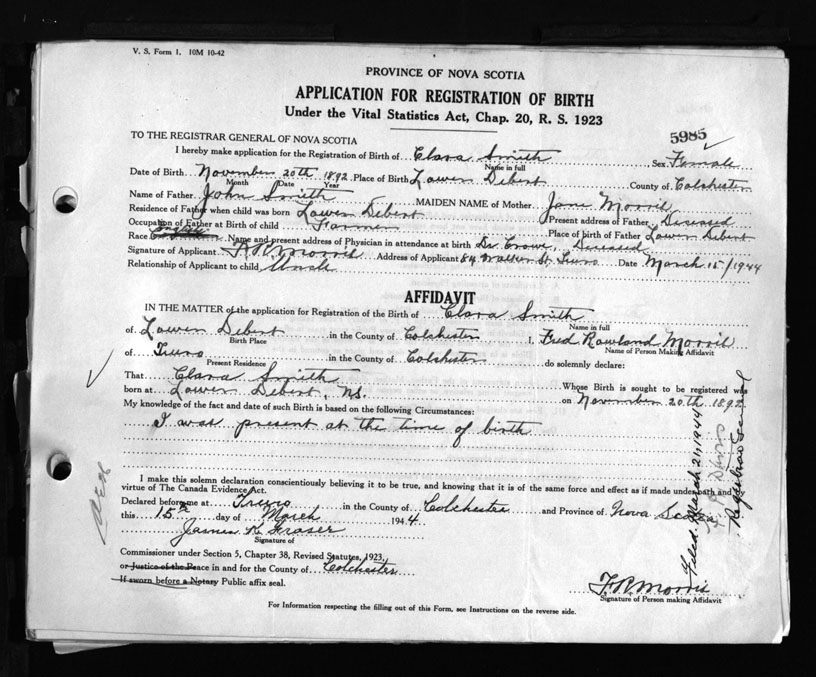 V. S. Form 1. 10M 10-42
PROVINCE OF NOVA SCOTIA
APPLICATION FOR REGISTRATION OF BIRTH
Under the Vital Statistics Act, Chap. 20, R. S. 1923
5985
TO THE REGISTRAR GENERAL OF NOVA SCOTIA
I hereby make application for the Registration of Birth of Clara Smith Sex Female
Name in full
Date of Birth November 20th 1892 Place of Birth Lower Debert County of Colchester
Month Date Year
Name of Father John Smith MAIDEN NAME of Mother Jane Morril
Residence of Father when child was born Lower Debert Present address of Father Deceased
Occupation of Father at Birth of child Farmer Place of birth of Father Lower Debert
Race Name and present address of Physician in attendance at birth Dr Crowe, Deceased
Signature of Applicant F R Morril Address of Applicant 84 Walker St. Truro Date March 15/1944
Relationship of Applicant to child Uncle
AFFIDAVIT
IN THE MATTER of the application for Registration of the Birth of Clara Smith
Name in full
of Lower Debert in the County of Colchester I, Fred Rowland Morril
Birth Place Name of Person Making Affidavit
of Truro in the County of Colchester do solemnly declare:
Present Residence
That Clara Smith Whose Birth is sought to be registered was
born at Lower Debert, NS. on November 20th 1892
My knowledge of the fact and date of such Birth is based on the following Circumstances:
I was present at the time of birth
I make this solemn declaration conscientiously believing it to be true, and knowing that it is of the same force and effect as if made under oath and by
virtue of The Canada Evidence Act.
Declared before me at Truro in the County of Colchester and Province of Nova Scotia
this 15th day of March 1944
James K. Fraser
Signature of
Commissioner under Section 5, Chapter 38, Revised Statutes, 1923,
or Justice of the Peace in and for the County of Colchester
If sworn before a Notary Public affix seal.
F R Morril
Signature of Person making Affidavit
For Information respecting the filling out of this Form, see Instructions on the reverse side.
Filed March 21 1944
Registrar General